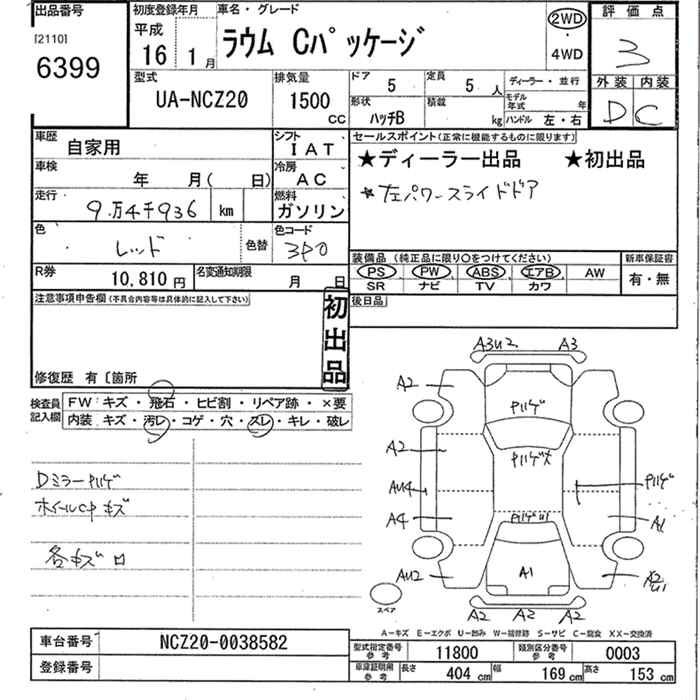 出品番号
[2110]
6399
初度登録年月
平成
16 1月
車名・グレード
ラウム Cパッケージ
2WD
・
4WD
評価点
3
外装 内装
D C
型式
UA-NCZ20
排気量
1500 CC
ドア 5
定員 5 人
ディーラー・並行
モデル年式 年
形状 ハッチB
積載 kg
ハンドル 左・右
車歴 自家用
シフト IAT
冷房 AC
車検 年 月( 日)
走行 9万4千936 km
燃料 ガソリン
色 レッド
色替
色コード 3P0
R券 10,810円
名変通知期限 月 日
セールスポイント(正常に機能するものに限ります)
★ディーラー出品 ★初出品
*左パワースライドドア
装備品 (純正品に限り○をつけてください)
PS PW ABS エアB AW
SR ナビ TV カワ
新車保証書
有・無
後日品
注意事項申告欄(不具合内容等は具体的に記入して下さい)
初出品
修復歴 有〔箇所
検査員記入欄
FW キズ・飛石・ヒビ割・リペア跡・×要
内装 キズ・汚レ・コゲ・穴・スレ・キレ・破レ
Dミラーハゲ
ホイールCPキズ
各キズ
A3U2 A3
A2
ハゲ
A2
AU4
A4 A1
AU2 A1 A2
A2 A2 A2
スペア
A-キズ E-エクボ U-凹み W-補修跡 S-サビ C-腐食 XX-交換済
車台番号 NCZ20-0038582
登録番号
型式指定番号参考 11800
類別区分番号参考 0003
車庫証明用参考 長さ 404 cm 幅 169 cm 高さ 153 cm